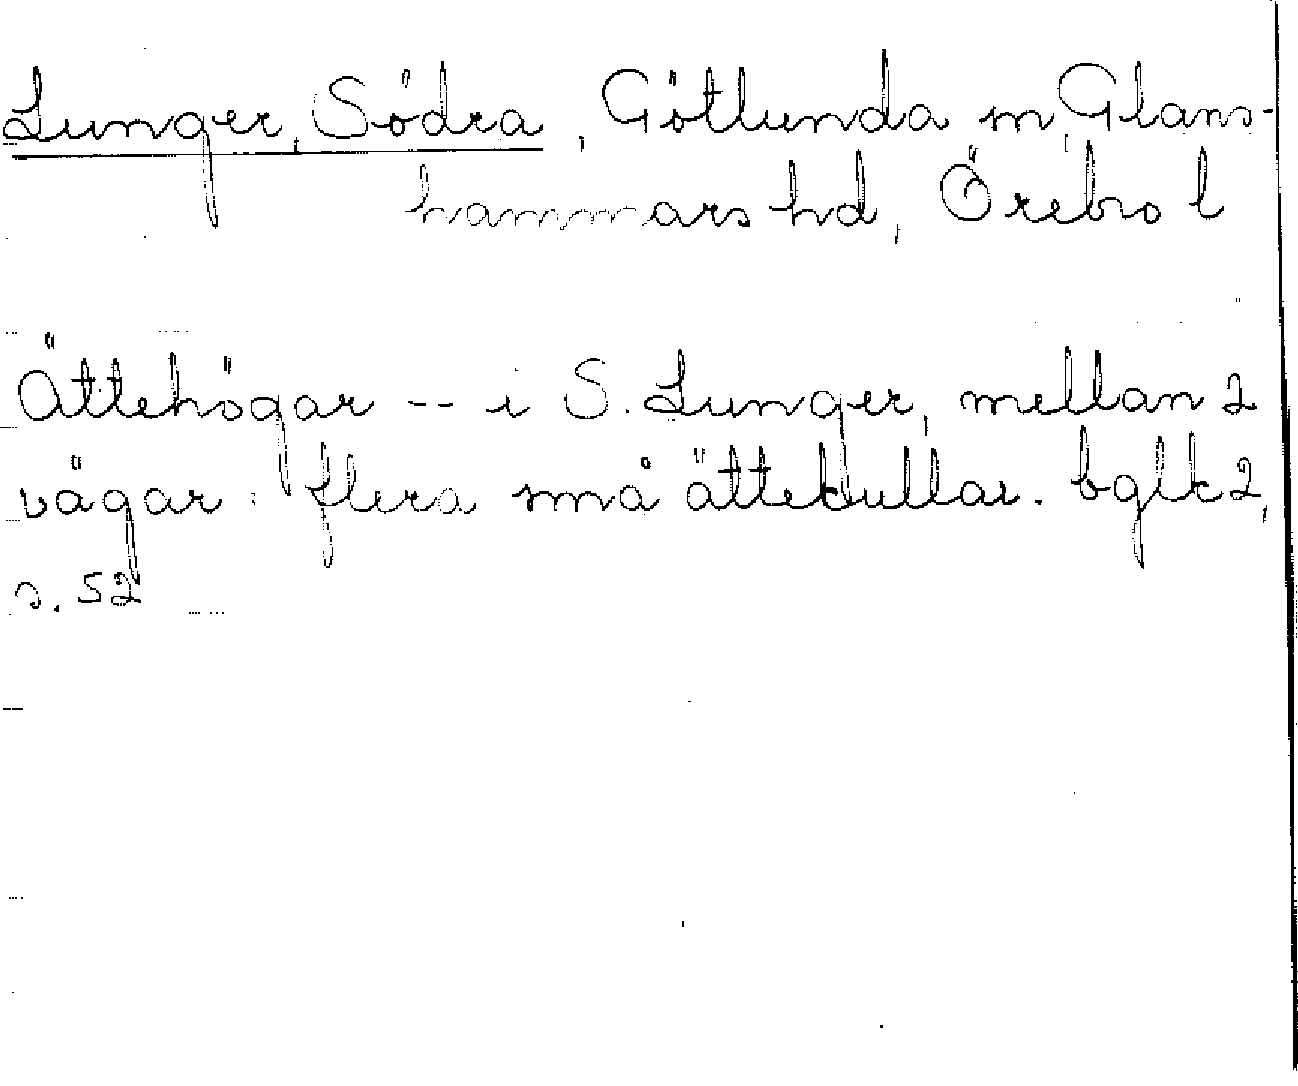 Lunger, Södra, Götlunda sn, Glans-
hammars hd, Örebro l
Ättehögar -- i S. Lunger, mellan 2
vägar: flera små ättekullar. bglk 2,
s. 52